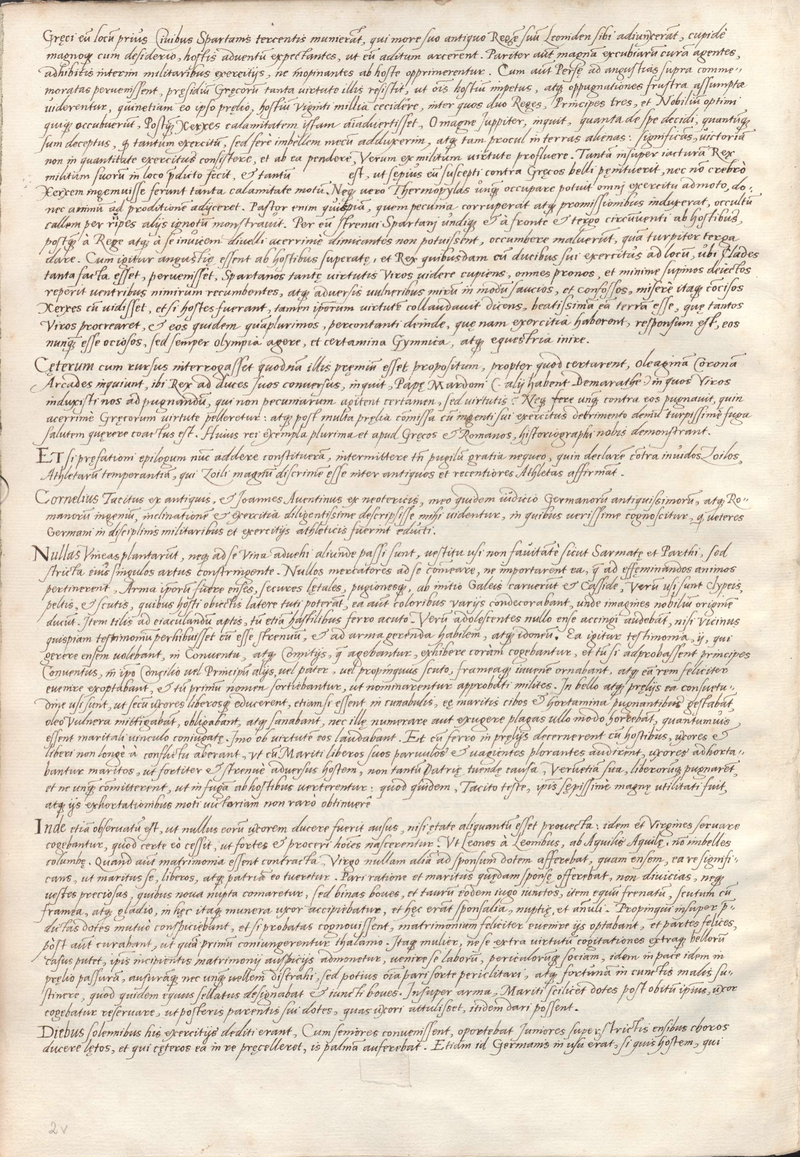 Gręci eū locū prius Civibus Spartanis tercentis munierāt, qui more suo antiquo Regē suū Leonidem sibi adiunxerāt, cupidè
magnoq; cum desiderio, hostis adventū expectantes, ut eū aditum arcerent. Pariter aūt magna excubiarū cura agentes,
adhibitis interim militaribus exercitijs, ne inopinantes ab hoste opprimerentur. Cum aūt Persę ad angustias supra comme-
moratas pervenissent, presidiū Gręcorū tanta virtute illis resistit, ut oīs hostiū impetus, atq; oppugnationes frustra assumptę
viderentur, quinetiam eo ipso prelio, hostiū viginti millia cecidere, inter quos duo Reges, Principes tres, et Nobiliū optimi
quiq; occubuerūt, Postq; Xerxes calamitatem istam aīadvertisset, O magne Juppiter, inquit, quanta de spe decidi, quantūq;
sum deceptus, q; tantum exercitū, sed fere imbellem mecū adduxerim, atq; tam procul in terras alienas: significās, victoriā
non in quantitate exercituū consistere, et ab ea pendere, Verum ex militum virtute profluere. Tantā insuper iacturā Rex
militum suorū in loco pdicto fecit, et tantū est, ut sępius eū suscepti contra Gręcos belli pęnituerit, nec nō crebrò
Xerxem ingemuisse ferunt tanta calamitate motū. Neq; vero Thermopylas unq; occupare potuit omni exercitu admoto, do-
nec animū ad proditionē adijceret. Pastor enim quispiā, quem pecunia corruperat atq; promissionibus induxerat, occultū
callem per rupes alijs ignotū monstravit. Per eū strenui Spartani undiq; et à fronte et tergo circūventi ab hostibus,
postq; à Rege atq; à se invicem divelli acerrimè dimicantes non potuissent, occumbere maluerūt, quā turpiter terga
dare. Cum igitur angustię essent ab hostibus superatę, et Rex quibusdam cū ducibus sui exercitus ad locū, ubi Clades
tanta facta esset, pervenisset, Spartanos tantę virtutis Viros videre cupiens, omnes pronos, et minimè supinos deiectos
reperit ventribus nimirum recumbentes, atq; adversis vulneribus mirū in modū saucios, et confossos, miserè itaq; cōcisos
Xerxes cū vidisset, etsi hostes fuerant, tamen ipsorum virtutē collaudavit dicens, beatissimā eā terrā esse, quę tantos
Viros procrearet, et eos quidem quāplurimos, percontanti deinde, quę nam exercitia haberent, responsum est, eos
nunq; esse ociosos, sed semper olympia agere, et certamina Gymnica, atq; equestria inire.
Cęterum cum rursus interrogasset quodnā illis pręmiū esset propositum, propter quod certarent, Oleaginā Coronā
Arcades inquiunt, ibi Rex ad duces suos conversus, inquit, Papę Mardoni (: alij habent Demarathe:) in quos Viros
induxisti nos ad pugnandū, qui non pecuniarum agitent certamen, sed virtutis? Neq; fere unq; contra eos pugnavit, quin
acerrimè Gręcorum virtute pelleretur: atq; post multa pręlia cōmissa cū ingenti sui exercitus detrimento demū turpissimè fuga
salutem quęrere coactus est. Huius rei exempla plurima et apud Gręcos et Romanos, historiographi nobis demonstrant.
Et si pręfationi epilogum nūc addere constituerā, intermittere tn̄ pugilū gratia nequeo, quin declare cōtra invidos Zoilos,
Athletarū temporantiā, qui Zoili magnū discrimē esse inter antiquos et recentiores Athletas affirmāt.
Cornelius Tacitus ex antiquis, et Joannes Aventinus ex neotericis, meo quidem iudicio Germanorū antiquissimorū, atq; Ro-
manorū ingeniū, inclinationē et exercitia diligentissimè descripsisse mihi videntur, in quibus verissimè cognoscitur, q; veteres
Germani in disciplinis militaribus et exercitijs athleticis fuerint educti.
Nullas Vineas plantarūt, neq; ad se Vina advehi aliunde passi sunt, vestitu usi non fluitāte sicut Sarmatę et Parthi, sed
stricta eius singulos artus constringente. Nullos mercatores ad se comeare, ne importarent ea, q; ad effęminandos animos
pertinerent, Arma ipsorū fuere enses, secures lętales, pugionesq;, ab initio Galeis caruerūt et Casside, Verū usi sunt Clypeis,
peltis, et scutis, quibus hosti obiectis latere tuti poterāt, ea aūt coloribus varijs condecorabant, unde imagines nobiliū originē
ducūt. Item telis ad eiaculandū aptis, tū etiā hastilibus ferro acuto. Verū adolescentes nullo ense accingi audebāt, nisi Vicinus
quispiam testimoniū perhibuisset eū esse strenuū, et ad arma gerenda habilem, atq; idoneū. Ea igitur testimonia, ij, qui
gerere ensem volebant, in Conventu, atq; Comitijs, q; agebantur, exhibere corām cogebantur, et tū si adprobassent principes
Conventus, in ipo Concilio vel Principū aliqs, vel pater, vel propinquus scuto, frameaq; iuvenē ornabant, atq; eā rem feliciter
evenire exoptabant, et tū primū nomen sortiebantur, ut nominarentur approbati milites. In bello atq; pręlijs ea consuetu-
dine usi sunt, ut secū uxores liberosq; educerent, etiamsi essent in cunabulis, eę maritis cibos et hortamina pugnantibus gestabāt
oleo Vulnera mittigabāt, obligabant, atq; sanabant, nec illę numerare aut exugere plagas ullo modo horrebāt, quantumvis
essent maritali vinculo coniugatę. Imo ob virtutē eos laudabant. Et cū ferro in pręlijs decernerent cū hostibus, uxores et
liberi non longè à conflictu aberant, ut cū Mariti liberos suos parvulos et vagientes plorantes audirent, uxores adhorta-
bantur maritos, ut fortiter et strenuè adversus hostem, non tantū Patrię tuendę causa, Verùetiā sua, liberorūq; pugnarēt,
et ne unq; cōmitterent, ut in fugā ab hostibus verterentur: quod quidem, Tacito teste, ipis sępissimè magnę utilitati fuit,
atq; ijs exhortationibus moti victoriam non rarò obtinuerē
Inde etiā observatū est, ut nullus eorū uxorem ducere fuerit ausus, nisi ętate aliquantū esset provecta: idem et Virgines servare
cogebantur, quod certè eò cessit, ut fortes et proceri hoīes nascerentur. Vt Leones à Leonibus, ab Aquilis Aquilę, nō imbelles
columbę. Quando aūt matrimonia essent contracta, Virgo nullam aliā ad sponsum dotem afferebat, quam ensem, ea re signifi-
cans, ut maritus se, liberos, atq; patriā eo tueretur. Pari ratione et maritus quędam sponsę offerebat, non divicias, neq;
vestes preciosas, quibus nova nupta comaretur, sed binas boves, et taurū eodem iugo iunctos, item equū frenatū, scutum cū
framea, atq; gladio, in hęc itaq; munera uxor accipiebatur, et hęc erāt sponsalia, nuptię, et anuli. Propinqui insuper p-
dictas dotes mutuò conspiciebunt, et si probatas cognovissent, matrimonium feliciter evenire ijs optabant, et partes felices,
pòst aūt curabant, ut quā primū coniungerentur thalamo. Itaq; mulier, ne se extra virtutū cogitationes extraq; bellorū
casus putet, ipis incipientis matrimonij auspicijs admonetur, venire se laborū, periculorūq; sociam, idem in pace idem in
pręlio passurā, ausurāq; nec unq; vellem distrahi, sed potius oīa pari sorte periclitari, atq; fortunā in cunctis malis su-
stinere, quod quidem equus sellatus designabat et iuncti boves. Insuper arma, Mariti scilicet dotes post obitū ipius, uxor
cogebatur reservare, ut posteris parentis sui dotes, quas uxori attulisset, itidem dari possent.
Diebus solennibus his exercitijs dediti erant, Cum seniores convenissent, oportebat Juniores super strictis ensibus choros
ducere lętos, et qui cęteros ea in re pręcelleret, is palmā auferebat. Etiam id Germanis in usu erat, si quis hostem, qui
2v